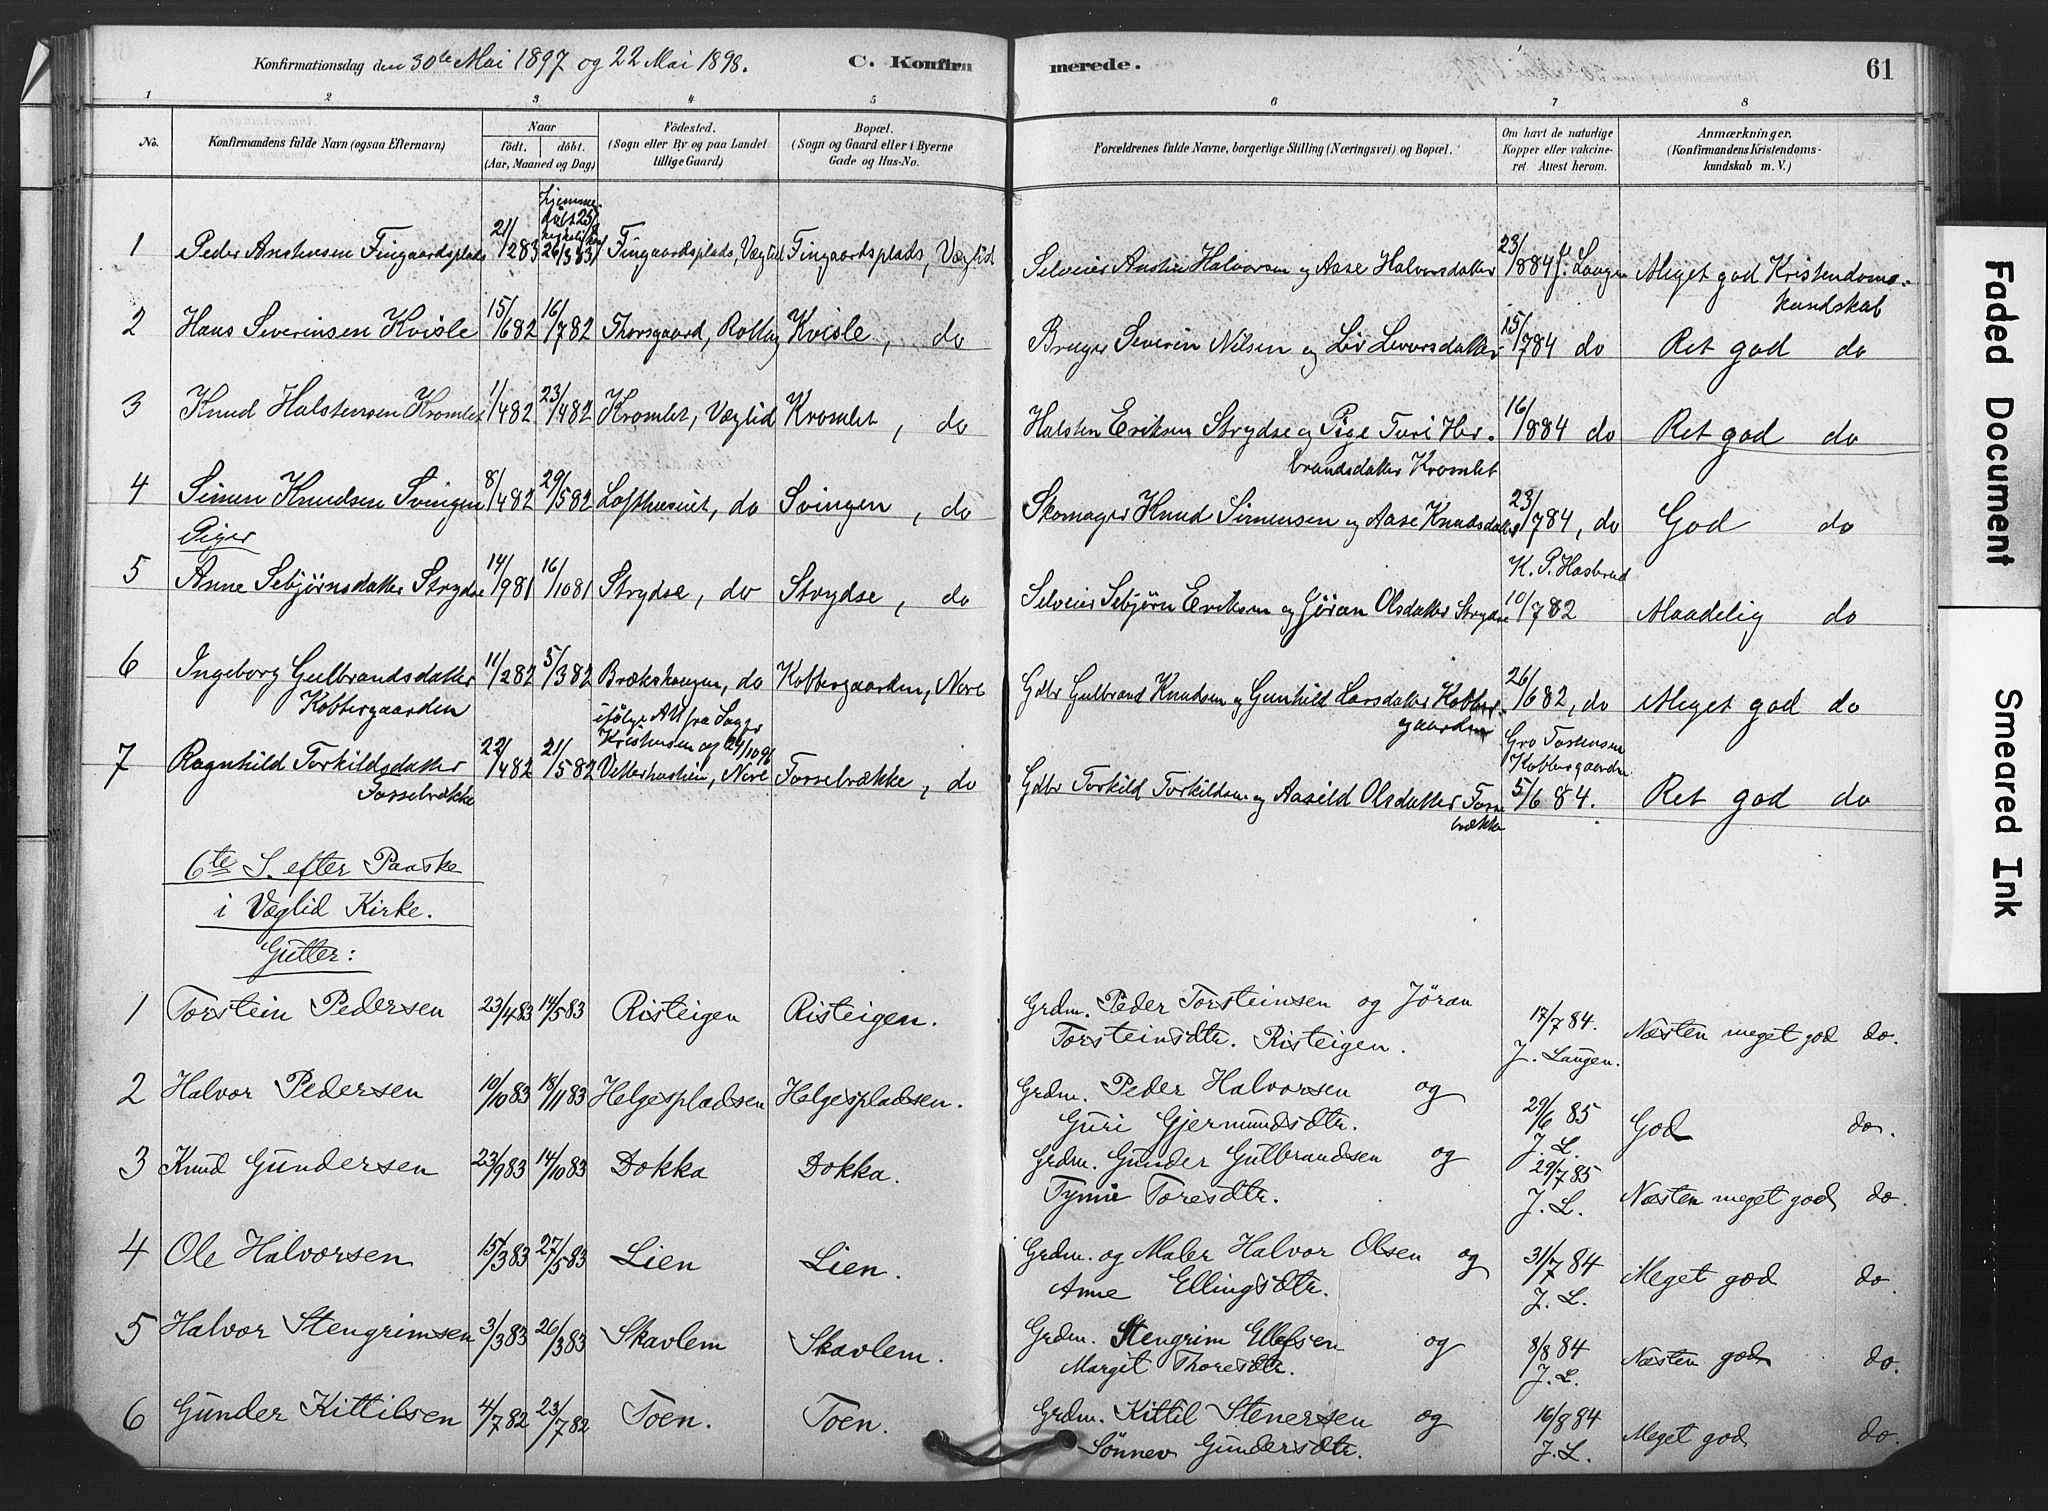 Konfirmationsdag den 30te Mai 1897 og 22 Mai 1898. C. Konfirmerede. 61
1 2 3 4 5 6 7 8
No. Konfirmandens fulde Navn (ogsaa Efternavn) Naar födt. döbt. (Aar, Maaned og Dag) Födested. (Sogn eller By og paa Landet tillige Gaard) Bopæl. (Sogn og Gaard eller i Byerne Gade og Hus-No. Forældrenes fulde Navne, borgerlige Stilling (Næringsvei) og Bopæl. Om havt de naturlige Kopper eller vakcineret. Attest herom. Anmærkninger. (Konfirmandens Kristendomskundskab m. V.)
hjemmedøbt 25/2
1 Peder Anstensen Fingaardsplads 21/2 83 26/3 83 Fingaardsplads, Væglid Fingaardsplads, Væglid Selveier Austen Halvorsen og Aase Halvorsdatter 23/8 84 J. Laugen Meget god Kristendomskundskab
2 Hans Severinsen Kvisle 15/6 82 16/7 82 Thorsgaard, Rollag Kvisle, do Bruger Severin Nilsen og Liv Levorsdatter 15/7 84 do Ret god do
3 Knud Halstensen Kromlet 1/4 82 23/4 82 Kromlet, Væglid Kromlet, do Halsten Eriksen Strydse og Pige Turi Herbrandsdatter Kromlet 16/8 84 do Ret god do
4 Simen Knudsen Svingen 8/4 82 29/5 82 Lofthusuiet, do Svingen, do Skomager Knud Simensen og Aase Knudsdatter 23/7 84, do God do
Piger
5 Anne Sebjørnsdatter Strydse 14/9 81 16/10 81 Strydse, do Strydse, do Selveier Sebjørn Eriksen og Jøran Olsdatter Strydse K. P. Hasbrud 10/7 82 Maadelig do
6 Ingeborg Gulbrandsdatter Kobbergaarden 11/2 82 5/3 82 Brækshaugen, do Kobbergaarden, Nore Gdbr Gulbrand Knudsen og Gunhild Larsdatter Kobbergaarden 26/6 82, do Meget god do
ifølge Att fra Sager Kristensen af 24/10 96
7 Ragnhild Torkildsdatter Fossebrække 22/4 82 21/5 82 Vetterhustien, Nore Fossebrække, do Gdbr Torkild Torkildsen og Aasild Olsdatter Fossebrække Gro Torstensen Kobbergaarden 5/6 84. Ret god do
6te S. efter Paaske
i Væglid Kirke.
Gutter:
1 Torstein Pedersen 23/4 83 14/5 83 Risteigen Risteigen. Grdm. Peder Torsteinsen og Jöran Torsteinsdtr. Risteigen. 17/7 84. J. Laugen. Næsten meget god do.
2 Halvor Pedersen 10/10 83 18/11 83 Helgespladsen Helgespladsen. Grdm. Peder Halvorsen og Guri Gjermundsdtr. 29/6 85 J. L. God do.
3 Knud Gundersen 23/9 83 14/10 83 Dokka Dokka. Grdm. Gunder Gulbrandsen og Tynne Toresdtr. 29/7 85 J. L. Næsten meget god do.
4 Ole Halvorsen 15/3 83 27/5 83 Lien Lien. Grdm. og Maler Halvor Olsen og Anne Ellingsdtr. 31/7 84 J. L. Meget god do.
5 Halvor Stengrimsen 3/3 83 26/3 83 Skavlem Skavlem. Grdm. Stengrim Ellefsen og Margit Thoresdtr. 8/8 84 J. L. Næsten god do.
6 Gunder Kittilsen 4/7 82 23/7 82 Toen. Toen. Grdm. Kittil Stenersen og Sönnev Gundersdtr. 16/8 84 J. L. Meget god do.
Faded Document
Smeared Ink